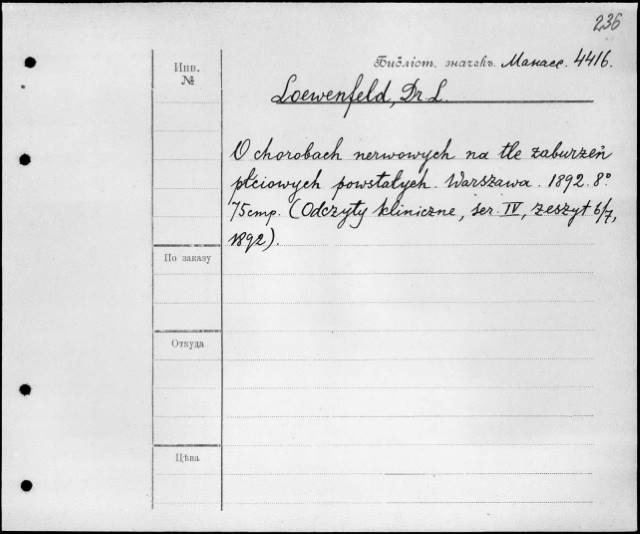 236
Библіот. значекъ. Манасс. 4416.
Инв.
№
Loewenfeld, Dr. L.
O chorobach nerwowych na tle zaburzeń
płciowych powstałych. Warszawa. 1892. 8°.
75 стр. (Odczyty kliniczne, ser. IV, zeszyt 6/7,
1892).
По заказу
Откуда
Цѣна